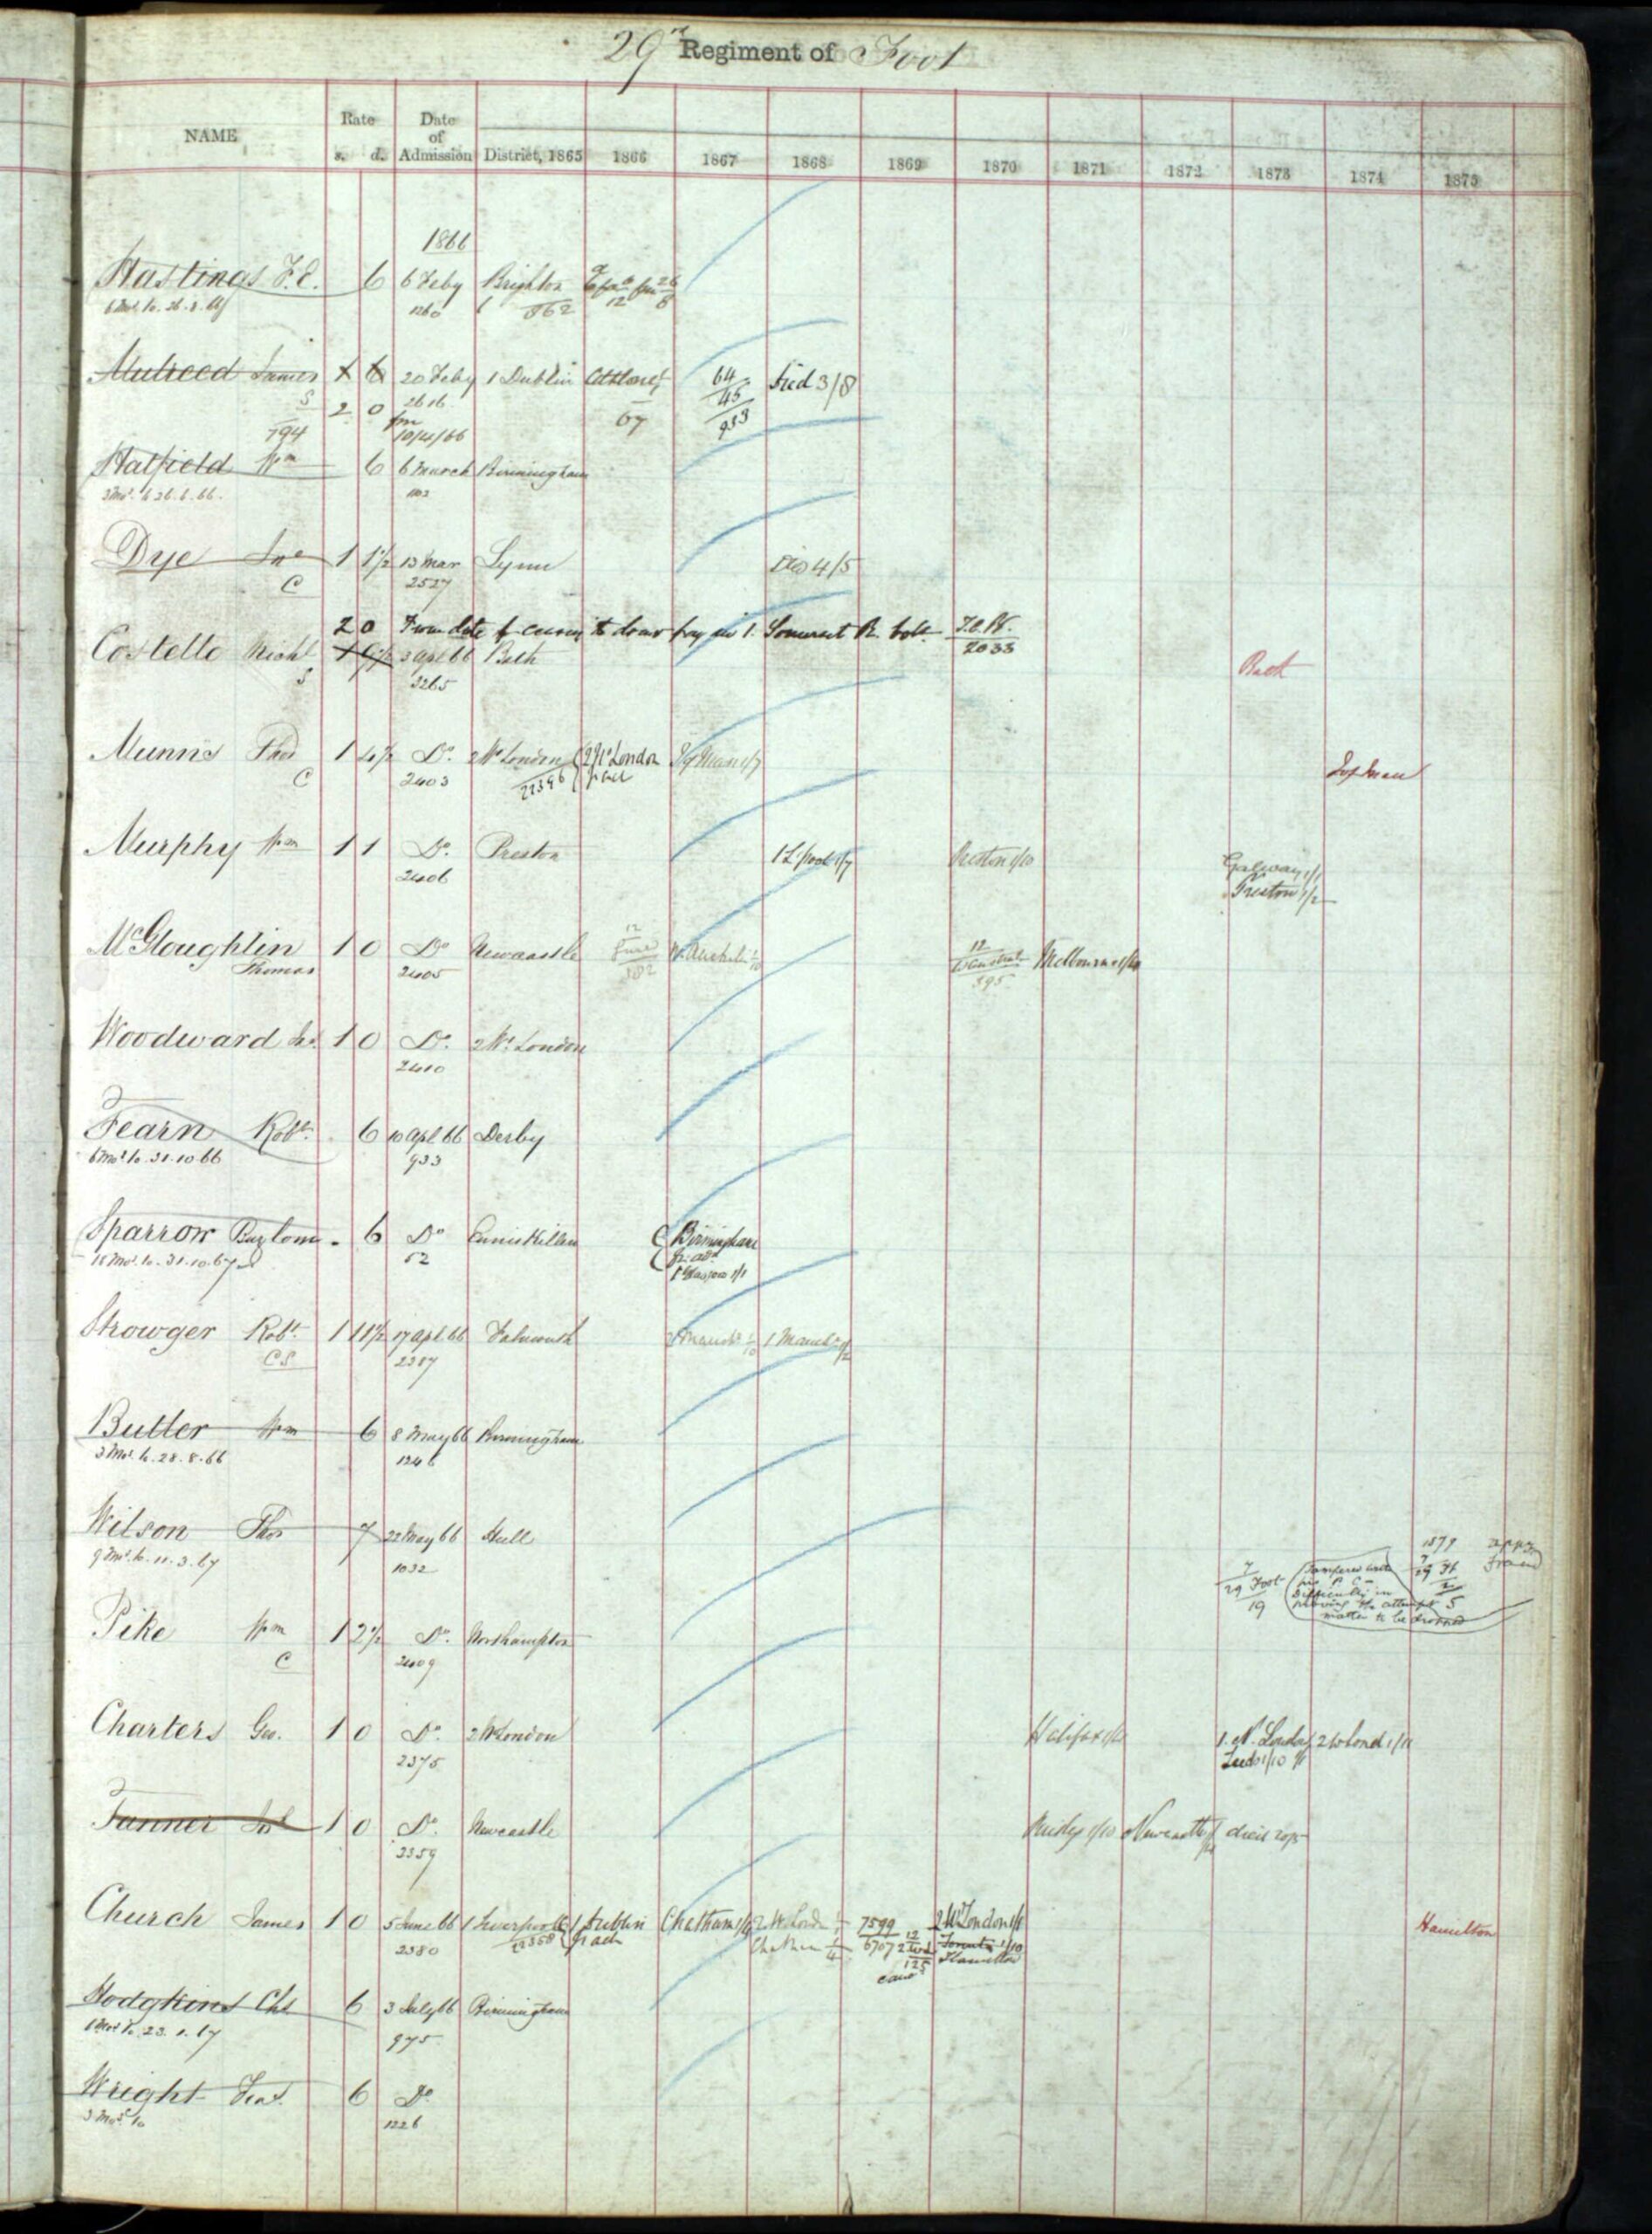 29th Regiment of Foot
NAME Rate s. d. Date of Admission District, 1865 1866 1867 1868 1869 1870 1871 1872 1873 1874 1875
1866
Hastings F.E. 6 6 Feby Brighton
6 Mos. to 26.8.66 1260 862 12 8
Mulreed James 1 6 20 Feby 1 Dublin Athlone 64 Died 3/8
S 2 0 2616 67 45
794 fm 10/4/66 933
Hatfield Wm 6 6 March Birmingham
3 Mos. to 26.6.66. 1102
Dye Jno 1 1½ 13 Mar Lynn Died 4/5
C 2527
2 0 From date of ceasing to draw pay in 1. Somerset R. Vols. W.O.
Costello Michl 1 9½ 3 Apl 66 Bath 2033 Bath
S 2265
Munns Thos 1 4½ Do. 2 W. London 2 W. London
C 2403 22396
Murphy Wm 1 1 Do. Preston 1 L'pool 1/7 Preston 1/10 Galway 1/1
2406 Preston 1/2
McGloughlin 1 0 Do Newcastle 12 12 Melbourne
Thomas 2405 382 395
Woodward Js. 1 0 Do. 2 W. London
2410
Fearn Robt. 6 10 Apl 66 Derby
6 Mos. to 31.10.66 933
Sparrow 6 Do Enniskillen Birmingham
18 Mos. to 31.10.67 52 1 Glasgow 1/1
Strowger Robt. 1 11½ 17 Apl 66 Falmouth 1 Manchr
CS 2387
Butler Wm 6 8 May 66 Birmingham
3 Mos. to 28.8.66 1246
Wilson Thos 7 22 May 66 Hull 1879
9 Mos. to 11.3.67 1032 7 29 Foot 19 Tampered with his P.C. - Difficulty in proving the attempt matter to be dropped 29 Ft 5 Fraud
Pike Wm 1 2½ Do. Northampton
C 2409
Charters Geo. 1 0 Do. 2 W London Halifax 1. N. London 2 W Lond 1/11
2375 Leeds 1/10
Tanner Jos 1 0 Do. Newcastle Newcastle died 20/5
2359
Church James 1 0 5 June 66 1 Liverpool 1 Dublin Chatham 2 W. Lond 7599 2 W London
2380 22358 Chatham 1/4 6707 12 125 Toronto 1/10 Hamilton Hamilton
Hodgkins Chs 6 3 July 66 Birmingham
6 Mos to 23.1.67 975
Wright 6 Do.
3 Mos. to 1226